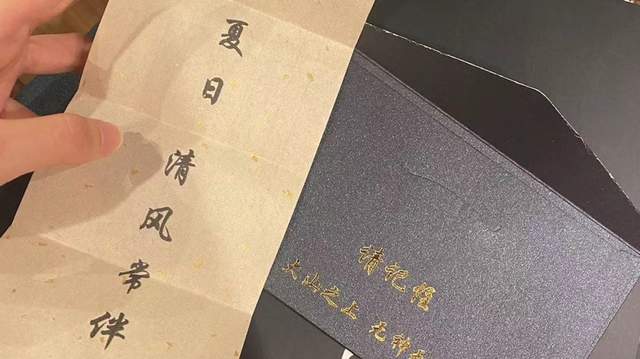 夏日
清风常伴
请记住
大山之上 无神